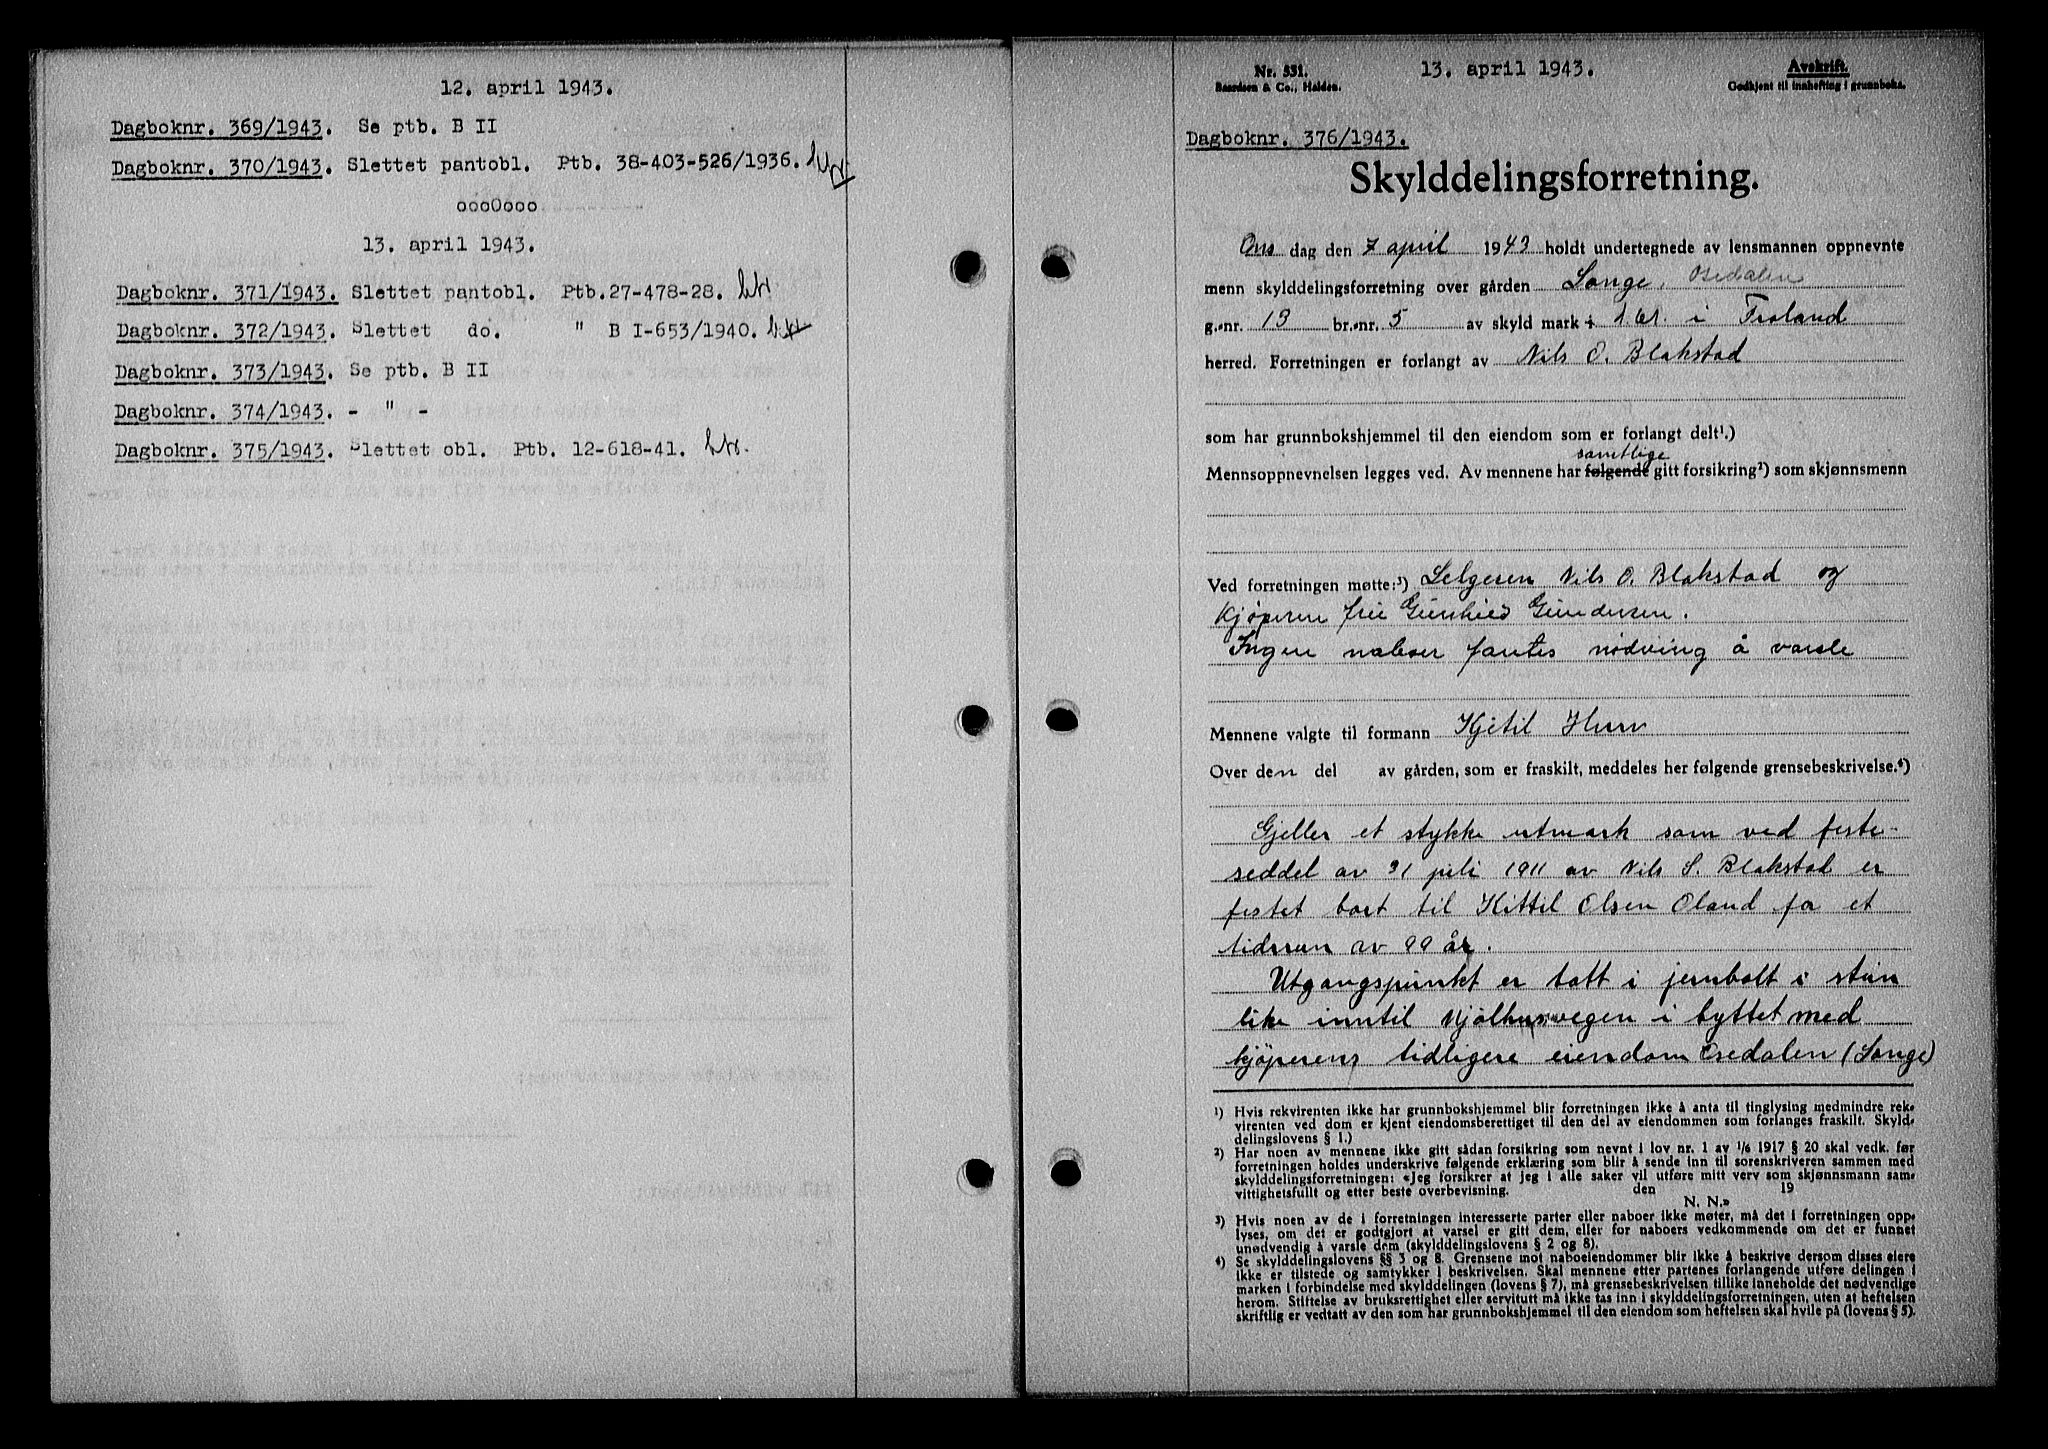 12. april 1943.
Dagboknr. 369/1943. Se ptb. B II
Dagboknr. 370/1943. Slettet pantobl. Ptb. 38-403-526/1936.
oooOooo
13. april 1943.
Dagboknr. 371/1943. Slettet pantobl. Ptb.27-478-28.
Dagboknr. 372/1943. Slettet do. " B I-653/1940.
Dagboknr. 373/1943. Se ptb. B II
Dagboknr. 374/1943. - " -
Dagboknr. 375/1943. Slettet obl. Ptb. 12-618-41.
Nr. 531.
Baardsen & Co., Halden.
13. april 1943.
Avskrift.
Godkjent til innhefting i grunnboka.
Dagboknr. 376/1943.
Skylddelingsforretning.
Ons dag den 7 april 1943 holdt undertegnede av lensmannen oppnevnte
menn skylddelingsforretning over gården Songe, Osedalen
g.-nr. 13 br.-nr. 5 av skyld mark i Froland
herred. Forretningen er forlangt av Nils O. Blakstad
som har grunnbokshjemmel til den eiendom som er forlangt delt¹.)
samtlige
Mennsoppnevnelsen legges ved. Av mennene har følgende gitt forsikring²) som skjønnsmenn
Ved forretningen møtte:³) Selgeren Nils O. Blakstad og
Kjøperen frü Gunhild Gundersen.
Ingen naboer fantes nødving å varsle
Mennene valgte til formann Kjetil Huw
Over den del av gården, som er fraskilt, meddeles her følgende grensebeskrivelse.⁴)
Gjeller et stykke utmark som ved feste-
seddel av 31 juli 1911 av Nils S. Blakstad er
festet bort til Kittil Olsen Oland for et
tidsrum av 99 år.
Utgangspunkt er tatt i jernbolt i stein
like inntil Njølhusvegen i byttet med
kjøperens tidligere eiendom Osedalen (Songe)
¹) Hvis rekvirenten ikke har grunnbokshjemmel blir forretningen ikke å anta til tinglysing medmindre rek-
virenten ved dom er kjent eiendomsberettiget til den del av eiendommen som forlanges fraskilt. (Skyld-
delingslovens § 1.)
²) Har noen av mennene ikke gitt sådan forsikring som nevnt i lov nr. 1 av 1/6 1917 § 20 skal vedk. før
forretningen holdes underskrive følgende erklæring som blir å sende inn til sorenskriveren sammen med
skylddelingsforretningen: «Jeg forsikrer at jeg i alle saker vil utføre mitt verv som skjønnsmann sam-
vittighetsfullt og etter beste overbevisning. den 19
N. N.»
³) Hvis noen av de i forretningen interesserte parter eller naboer ikke møter, må det i forretningen opp-
lyses, om det er godtgjort at varsel er gitt dem, eller for naboers vedkommende om det er funnet
unødvendig å varsle dem (skylddelingslovens § 2 og 8).
⁴) Se skylddelingslovens §§ 3 og 8. Grensene mot naboeiendommer blir ikke å beskrive dersom disses eiere
ikke er tilstede og samtykker i beskrivelsen. Skal mennene etter partenes forlangende utføre delingen i
marken i forbindelse med skylddelingen (lovens § 7), må grensebeskrivelsen tillike inneholde det nødvendige
herom. Stiftelse av bruksrettighet eller servitutt må ikke tas inn i skylddelingsforretningen, uten at heftelsen
skriftlig er vedtatt av den som har grunnbokshjemmel til den eiendom som heftelsen skal hvile på (lovens § 5).